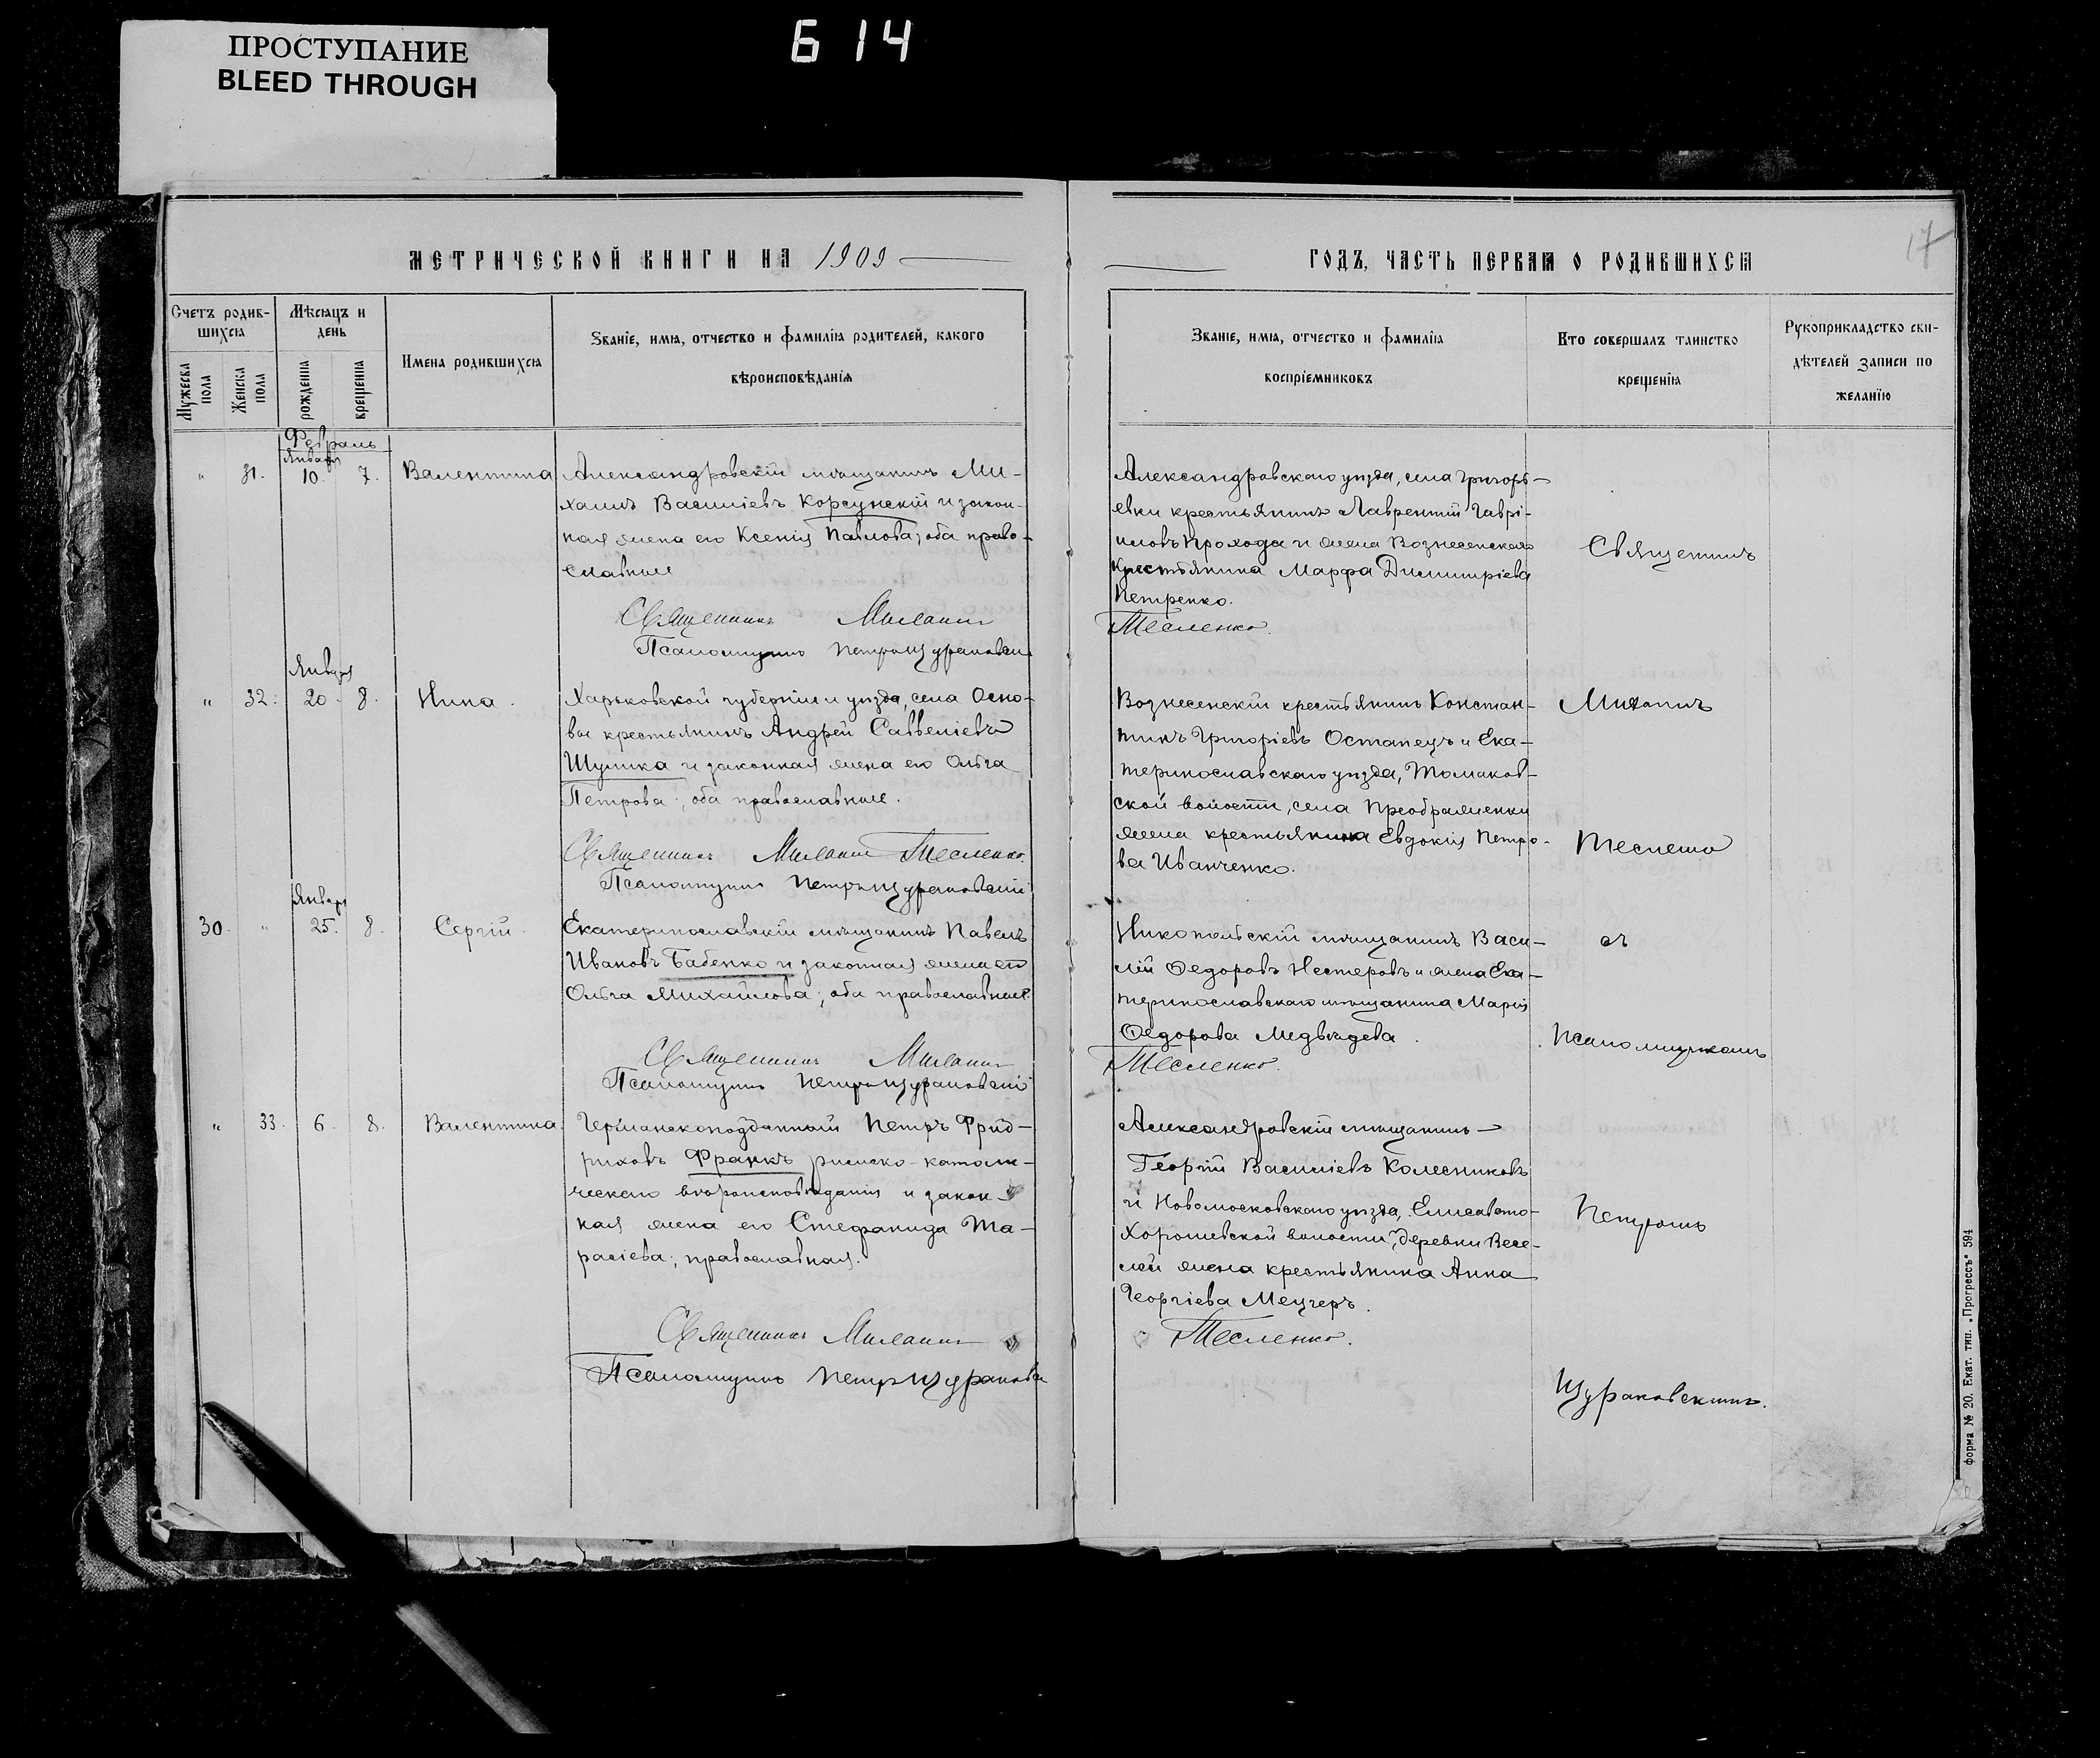 ПРОСТУПАНИЕ
BLEED THROUGH
Б 14
МЕТРИЧЕСКОЙ КНИГИ НА 1909
ГОДЪ, ЧАСТЬ ПЕРВАЯ О РОДИВШИХСЯ
17
Счетъ родив-
шихся
Мужеска пола
Женска пола
Мѣсяцъ и
день
рожденія
крещенія
Имена родившихся
Званіе, имя, отчество и фамилія родителей, какого
вѣроисповѣданія
Званіе, имя, отчество и фамилія
воспріемниковъ
Кто совершалъ таинство
крещенія
Рукоприкладство сви-
дѣтелей записи по
желанію
Февраль
Января
" 31. 10. 7. Валентина
Александровскій мѣщанинъ Ми-
хаилъ Василіевъ Корсунскій и закон-
ная жена его Ксенія Павлова; оба право-
славные
Священникъ Михаилъ
Тесленко.
Псаломщикъ Петръ Щураковскій
Александровскаго уѣзда, села Григорь-
евки крестьянинъ Лаврентій Гаврі-
иловъ Прохода и жена Вознесенскаго
крестьянина Марфа Димитріева
Петренко.
Января
" 32. 20. 8. Нина.
Харьковской губерніи и уѣзда, села Осно-
вы крестьянинъ Андрей Саввеліевъ
Шулика и законная жена его Ольга
Петрова; оба православные.
Священникъ Михаилъ Тесленко.
Псаломщикъ Петръ Щураковскій
Вознесенскій крестьянинъ Констан-
тинъ Григоріевъ Остапецъ и Ека-
теринославскаго уѣзда, Томаков-
ской волости, села Преображенки
жена крестьянина Евдокія Петро-
ва Иванченко.
Января
30. " 25. 8. Сергій.
Екатеринославскій мѣщанинъ Павелъ
Ивановъ Бабенко и законная жена его
Ольга Михайлова; оба православные.
Священникъ Михаилъ
Тесленко.
Псаломщикъ Петръ Щураковскій
Никопольскій мѣщанинъ Васи-
лій Ѳедоровъ Нестеровъ и жена Ека-
теринославскаго мѣщанина Марія
Ѳедорова Медвѣдева.
" 33. 6. 8. Валентина.
Германскоподданный Петръ Фрид-
риховъ Франкъ римско-католи-
ческаго вѣроисповѣданія и закон-
ная жена его Стефанида Та-
расіева, православная.
Священникъ Михаилъ
Тесленко.
Псаломщикъ Петръ Щураковскій
Александровскій мѣщанинъ
Георгій Василіевъ Колесниковъ
и Новомосковскаго уѣзда, Елисавето-
Хорошевской волости, деревни Весе-
лой жена крестьянина Анна
Георгіева Мецгеръ.
Священникъ
Михаилъ
Тесленко
съ
псаломщикомъ
Петромъ
Щураковскимъ.
форма № 20. Екат. тип. „Прогрессъ“ 594